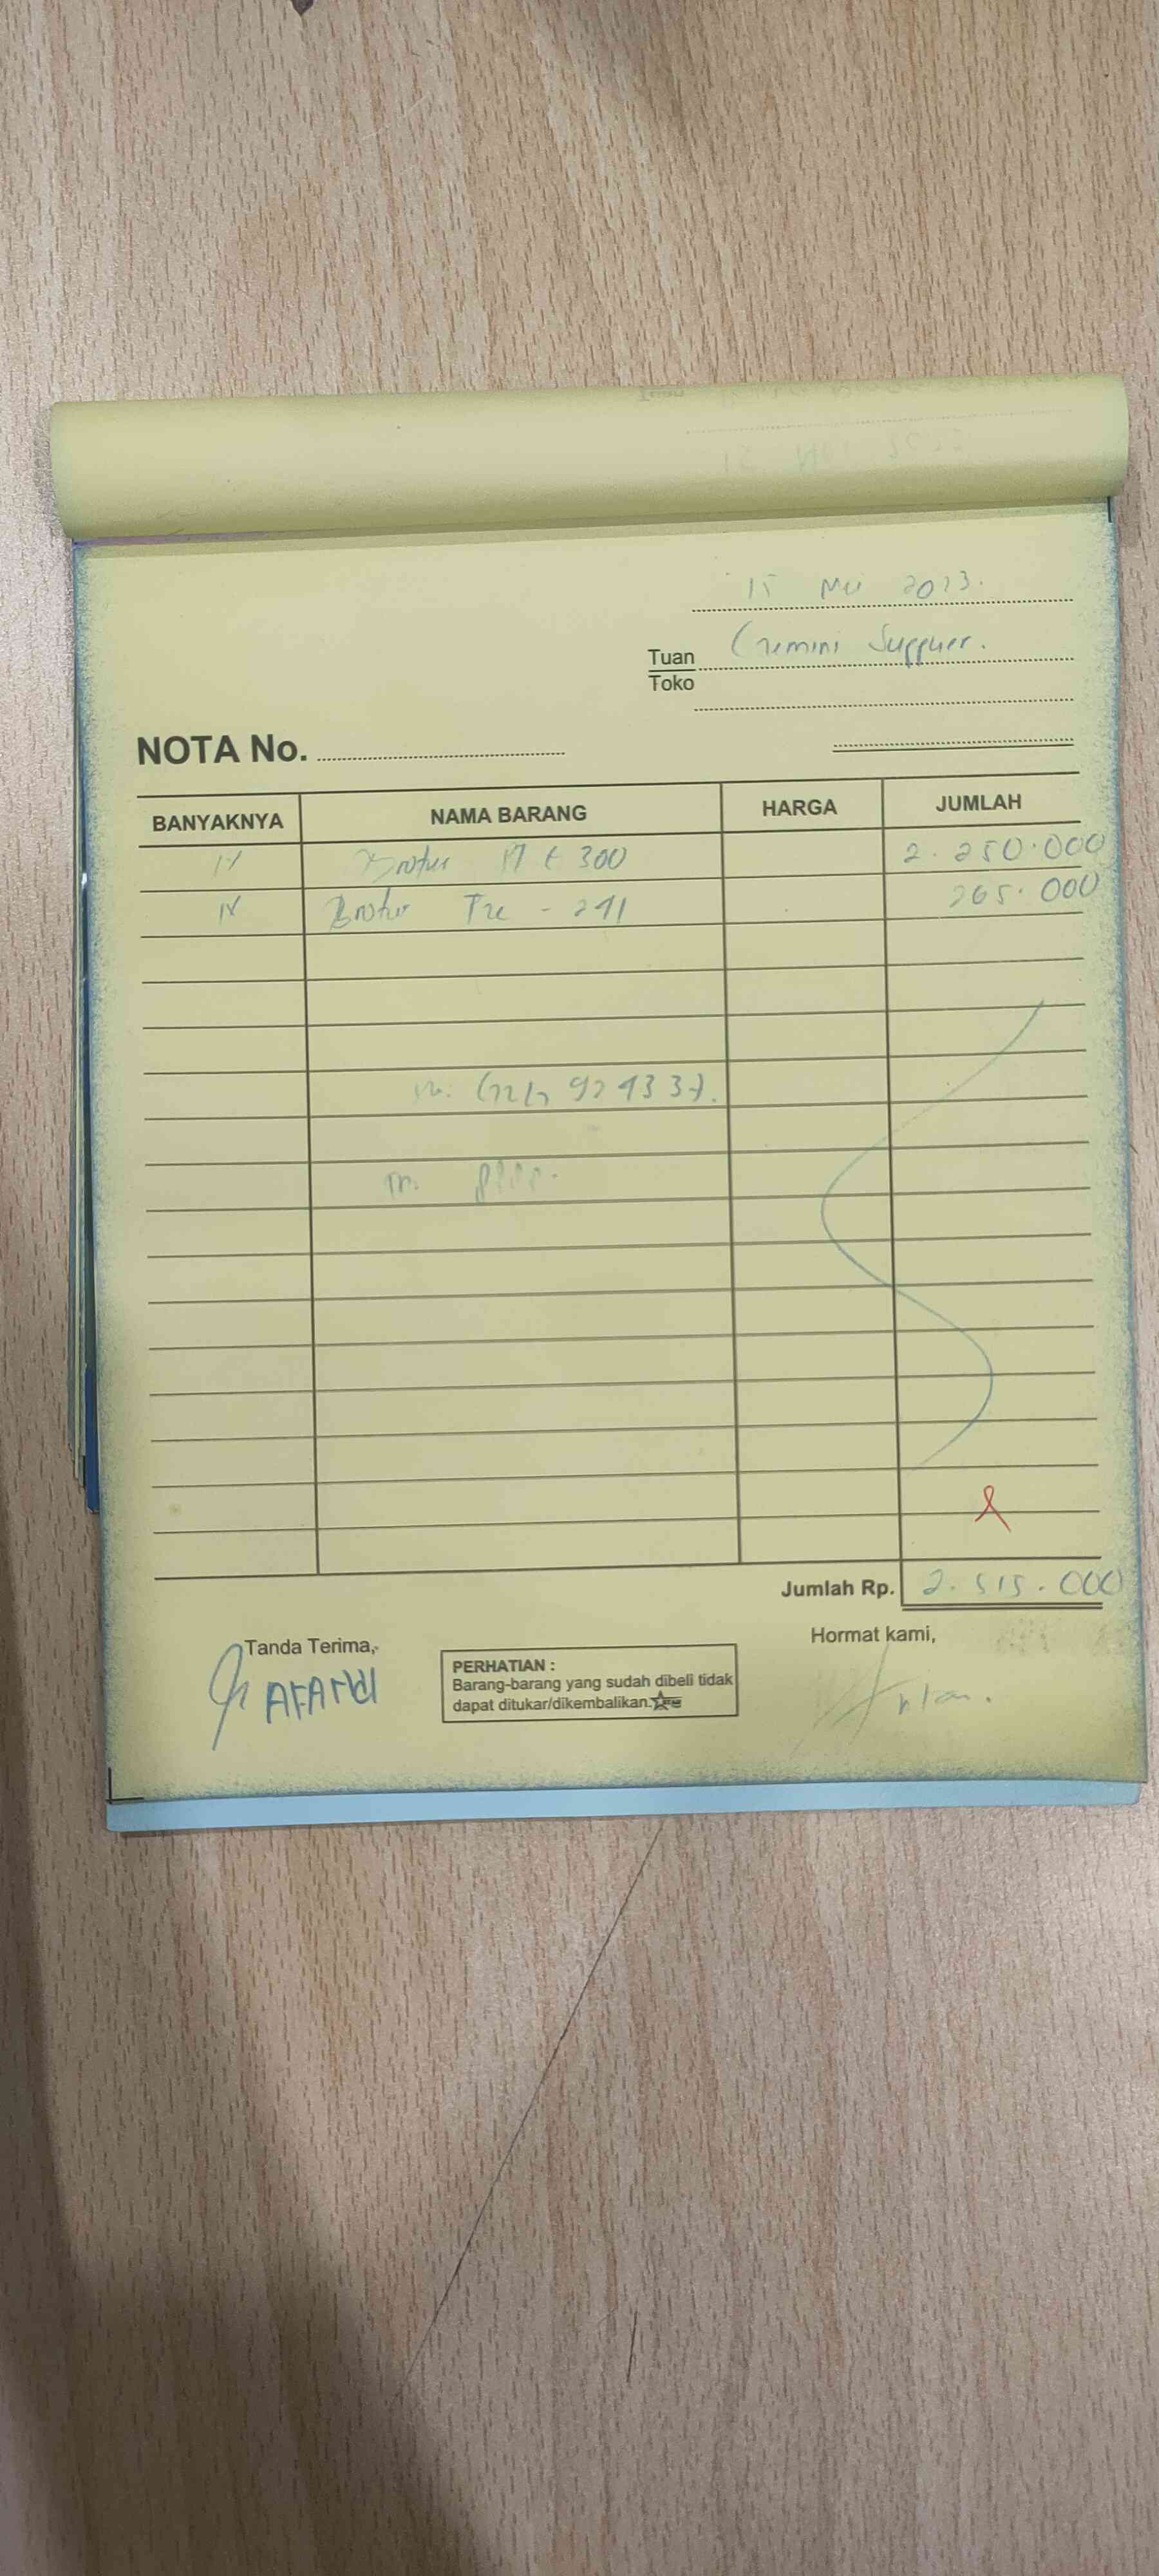 15 Mei 2023.
Tuan Gemini Supplier.
Toko
NOTA No.
BANYAKNYA NAMA BARANG HARGA JUMLAH
1x Brother PT E 300 2.250.000
1x Brother Tze - 241 265.000
Jumlah Rp. 2.515.000
Tanda Terima, Hormat kami,
AFANDI
PERHATIAN :
Barang-barang yang sudah dibeli tidak
dapat ditukar/dikembalikan.